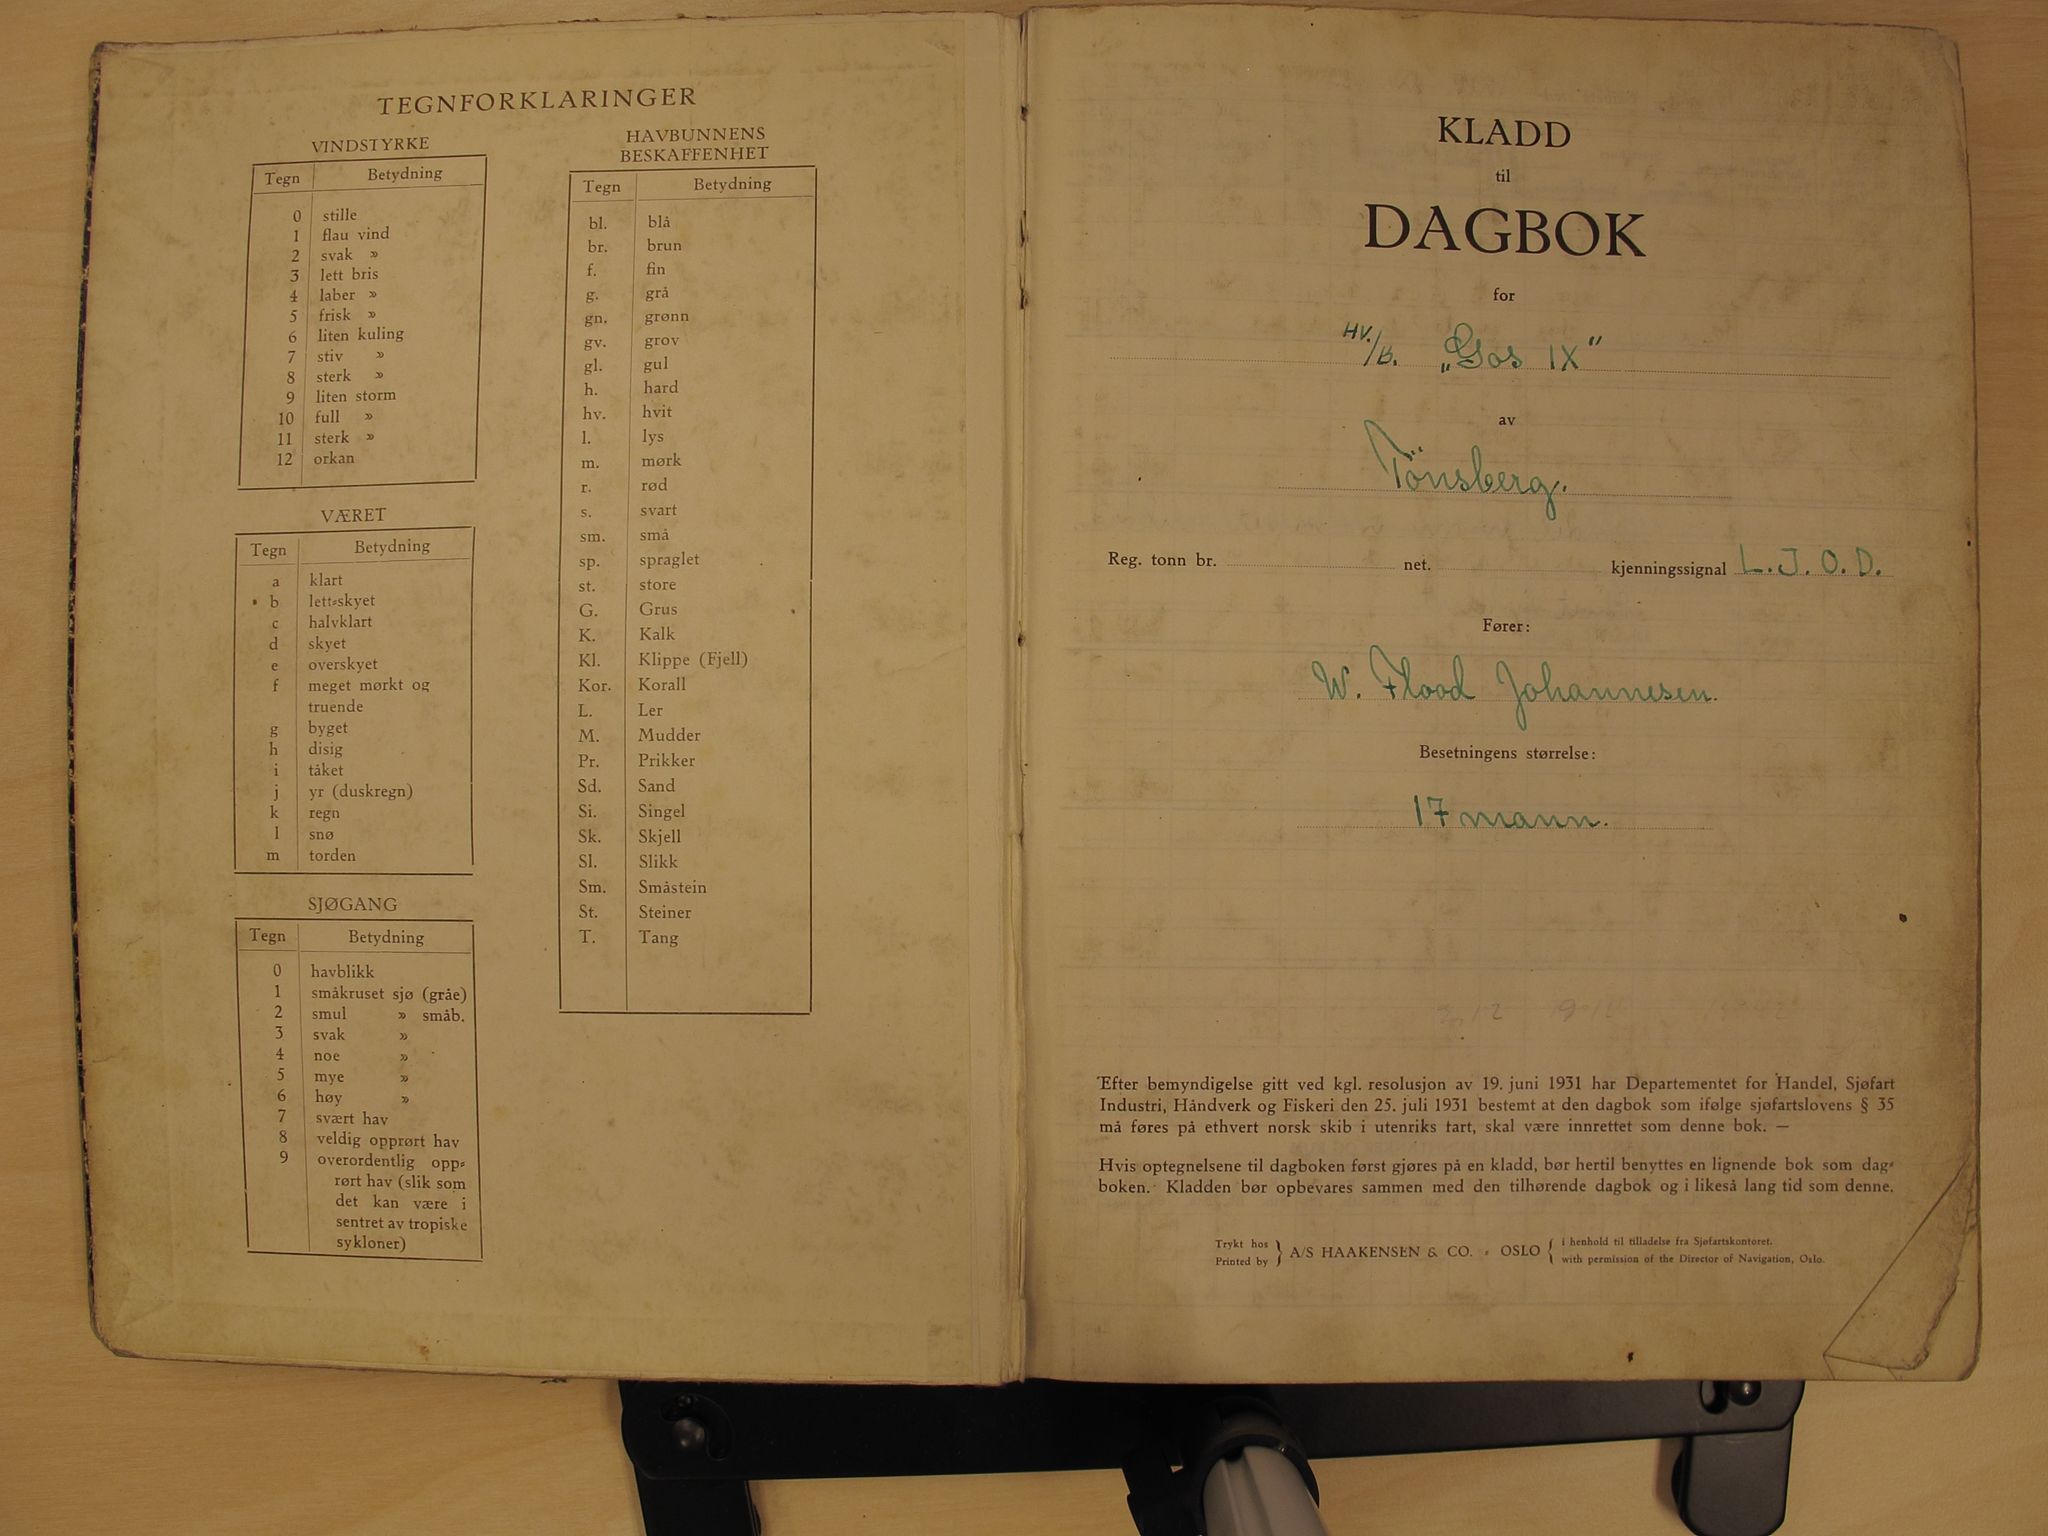 TEGNFORKLARINGER
VINDSTYRKE
Tegn Betydning
0 stille
1 flau vind
2 svak »
3 lett bris
4 laber »
5 frisk »
6 liten kuling
7 stiv »
8 sterk »
9 liten storm
10 full »
11 sterk »
12 orkan
VÆRET
Tegn Betydning
a klart
b lett-skyet
c halvklart
d skyet
e overskyet
f meget mørkt og
truende
g byget
h disig
i tåket
j yr (duskregn)
k regn
l snø
m torden
SJØGANG
Tegn Betydning
0 havblikk
1 småkruset sjø (gråe)
2 smul » småb.
3 svak »
4 noe »
5 mye »
6 høy »
7 svært hav
8 veldig opprørt hav
9 overordentlig opp-
rørt hav (slik som
det kan være i
sentret av tropiske
sykloner)
HAVBUNNENS
BESKAFFENHET
Tegn Betydning
bl. blå
br. brun
f. fin
g. grå
gn. grønn
gv. grov
gl. gul
h. hard
hv. hvit
l. lys
m. mørk
r. rød
s. svart
sm. små
sp. spraglet
st. store
G. Grus
K. Kalk
Kl. Klippe (Fjell)
Kor. Korall
L. Ler
M. Mudder
Pr. Prikker
Sd. Sand
Si. Singel
Sk. Skjell
Sl. Slikk
Sm. Småstein
St. Steiner
T. Tang
KLADD
til
DAGBOK
for
HV./B. „Gos IX"
av
Tönsberg.
Reg. tonn br. net. kjenningssignal L.J.O.D.
Fører:
W. Flood Johannesen.
Besetningens størrelse:
17 mann.
Efter bemyndigelse gitt ved kgl. resolusjon av 19. juni 1931 har Departementet for Handel, Sjøfart
Industri, Håndverk og Fiskeri den 25. juli 1931 bestemt at den dagbok som ifølge sjøfartslovens § 35
må føres på ethvert norsk skib i utenriks tart, skal være innrettet som denne bok. —
Hvis optegnelsene til dagboken først gjøres på en kladd, bør hertil benyttes en lignende bok som dag-
boken. Kladden bør opbevares sammen med den tilhørende dagbok og i likeså lang tid som denne.
Trykt hos
Printed by } A/S HAAKENSEN & CO. - OSLO { i henhold til tilladelse fra Sjøfartskontoret.
with permission of the Director of Navigation, Oslo.